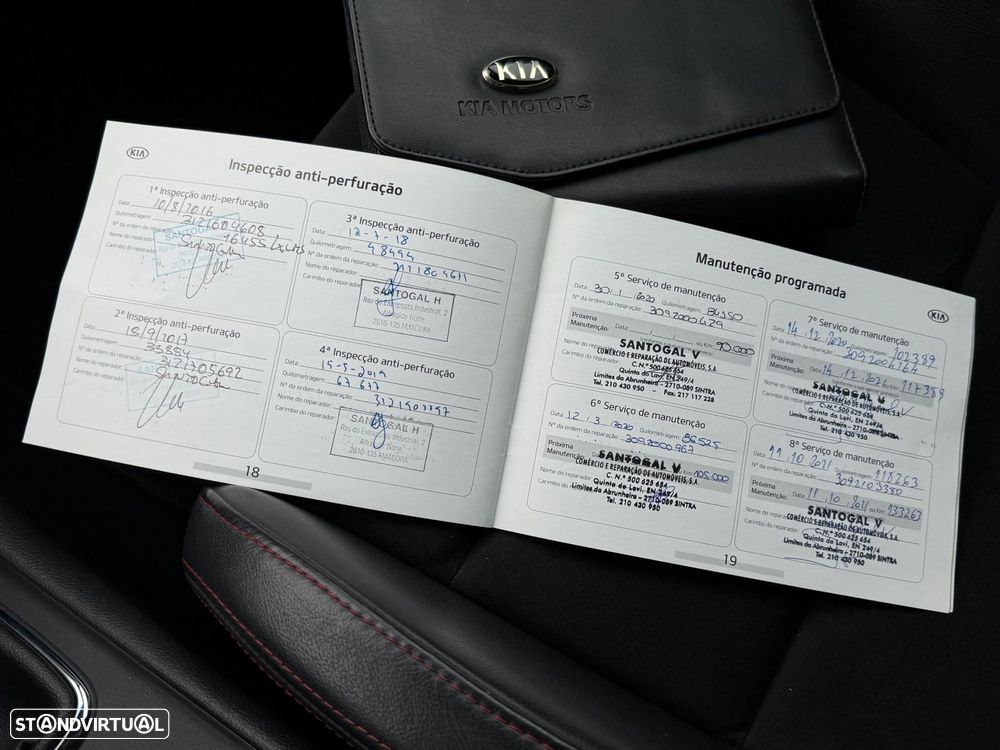 KIA
KIA MOTORS
KIA
Inspecção anti-perfuração
1ª Inspecção anti-perfuração
Data 10/8/2016
Quilometragem
Nº da ordem da reparação 3121604608
Nome do reparador 16455
Carimbo do reparador
SANTOGAL
2610-135 AMADORA
2ª Inspecção anti-perfuração
Data 18/9/2017
Quilometragem 33884
Nº da ordem da reparação 3121705692
Nome do reparador
Carimbo do reparador
3ª Inspecção anti-perfuração
Data 12-7-18
Quilometragem 48494
Nº da ordem da reparação
Nome do reparador
Carimbo do reparador
SANTOGAL H
Rua do Entreposto Industrial, 2
Alfragide Norte
2610-135 AMADORA
4ª Inspecção anti-perfuração
Data 15-5-2019
Quilometragem 67677
Nº da ordem da reparação
Nome do reparador
Carimbo do reparador
SANTOGAL H
Rua do Entreposto Industrial, 2
Alfragide Norte
2610-135 AMADORA
18
KIA
Manutenção programada
5º Serviço de manutenção
Data 30/1/2020 Quilometragem 84150
Nº da ordem da reparação 3092000429
Próxima Manutenção: Data / / ou Km 90.000
Nome do reparador
Carimbo do reparador
SANTOGAL V
COMÉRCIO E REPARAÇÃO DE AUTOMÓVEIS, S.A.
C. N.º 500 625 654
Quinta do Lavi, EN 249/4
Limites da Abrunheira - 2710-089 SINTRA
Tel. 210 430 950 - Fax: 217 117 228
6º Serviço de manutenção
Data 12/3/2020 Quilometragem 86525
Nº da ordem da reparação 3092000967
Próxima Manutenção: ou Km 105.000
Nome do reparador
Carimbo do reparador
SANTOGAL V
COMÉRCIO E REPARAÇÃO DE AUTOMÓVEIS, S.A.
C. N.º 500 625 654
Quinta do Lavi, EN 249/4
Limites da Abrunheira - 2710-089 SINTRA
Tel. 210 430 950
7º Serviço de manutenção
Data 14/12/2020 Quilometragem 102389
Nº da ordem da reparação 3092004764
Próxima Manutenção: Data 14/12/2021 ou Km 117389
Nome do reparador
Carimbo do reparador
SANTOGAL V
COMÉRCIO E REPARAÇÃO DE AUTOMÓVEIS, S.A.
C. N.º 500 625 654
Quinta do Lavi, EN 249/4
Limites da Abrunheira - 2710-089 SINTRA
Tel. 210 430 950
8º Serviço de manutenção
Data 11/10/2021 Quilometragem 118263
Nº da ordem da reparação 3092103380
Próxima Manutenção: Data 11/10/ ou Km 133263
Nome do reparador
Carimbo do reparador
SANTOGAL V
COMÉRCIO E REPARAÇÃO DE AUTOMÓVEIS, S.A.
C. N.º 500 625 654
Quinta do Lavi, EN 249/4
Limites da Abrunheira - 2710-089 SINTRA
Tel. 210 430 950
19
STANDVIRTUAL